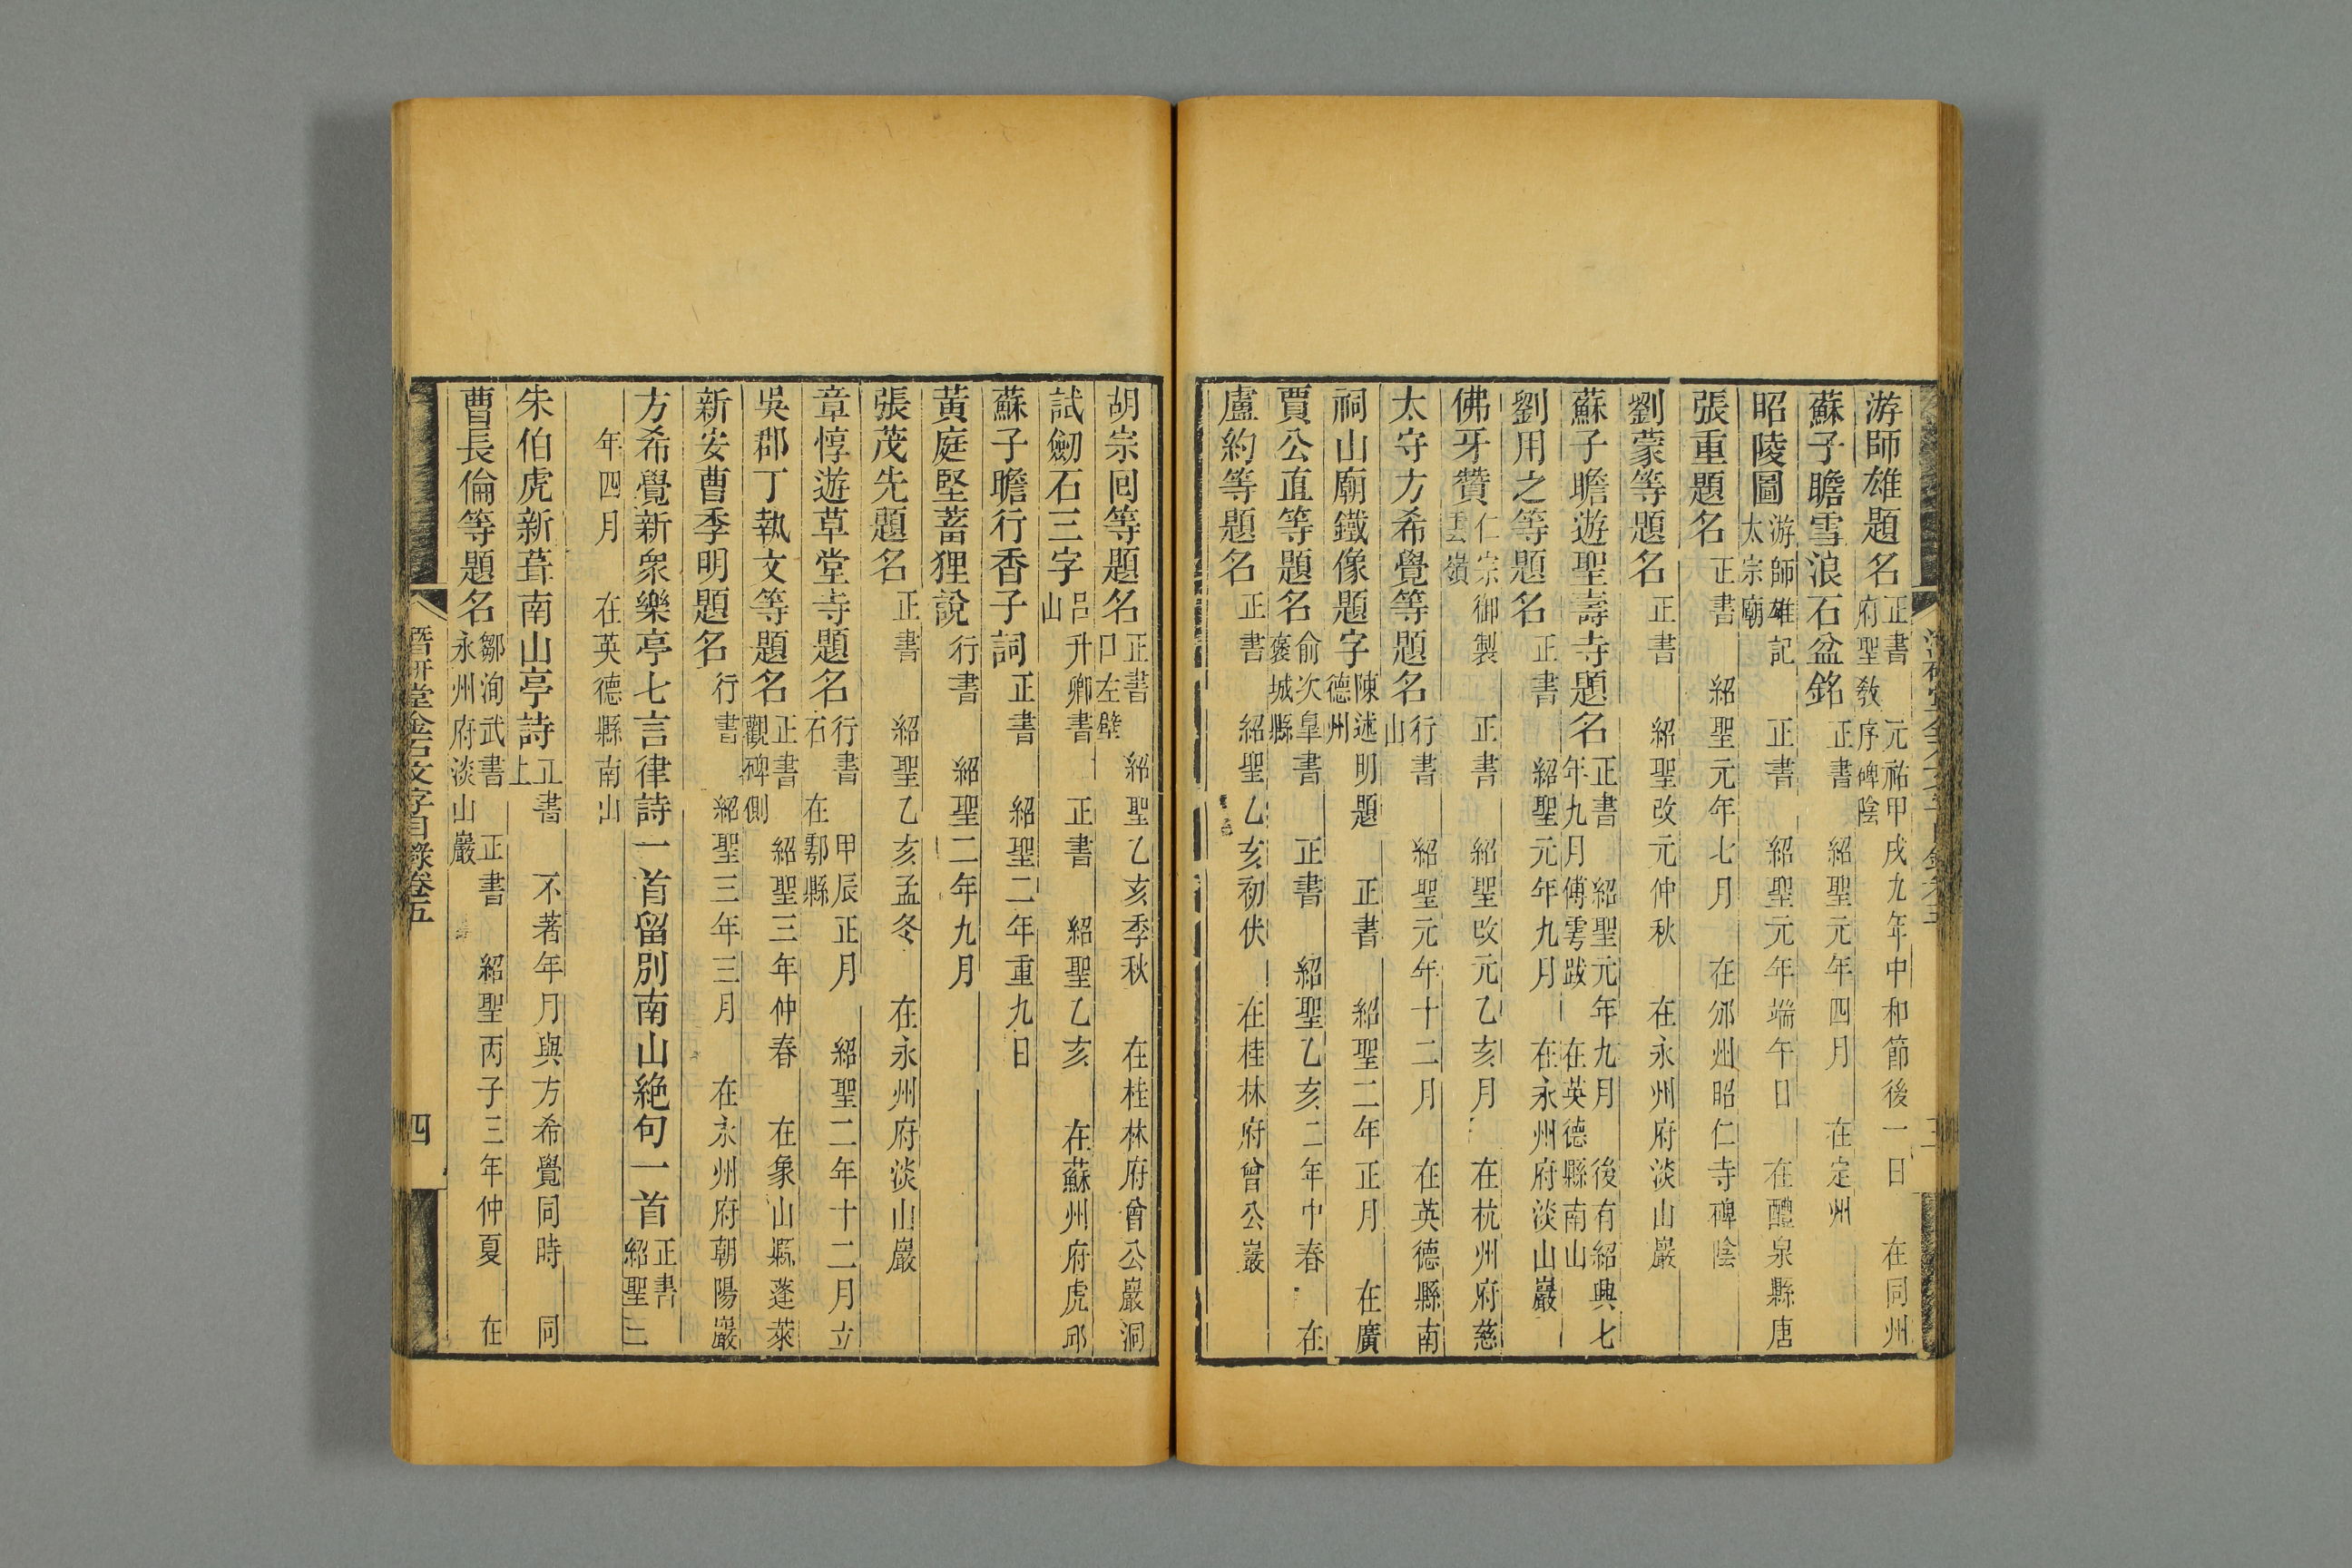 游師雄題名 正書 元祐甲戌九年中和節後一日 在同州府聖敎序碑陰
蘇子瞻雪浪石盆銘 正書 紹聖元年四月 在定州
昭陵圖 游師雄記 正書 紹聖元年端午日 在醴泉縣唐太宗廟
張重題名 正書 紹聖元年七月 在邠州昭仁寺碑陰
劉蒙等題名 正書 紹聖改元仲秋 在永州府淡山巖
蘇子瞻遊聖壽寺題名 正書 紹聖元年九月 後有紹興七年九月傅雱跋 在英德縣南山
劉用之等題名 正書 紹聖元年九月 在永州府淡山巖
佛牙贊 仁宗御製 正書 紹聖改元乙亥月 在杭州府慈雲嶺
太守方希覺等題名 行書 紹聖元年十二月 在英德縣南山
祠山廟鐵像題字 陳述明題 正書 紹聖二年正月 在廣德州
賈公直等題名 俞次臯書 正書 紹聖乙亥二年中春 在褒城縣
盧約等題名 正書 紹聖乙亥初伏 在桂林府曾公巖
胡宗囘等題名 正書 紹聖乙亥季秋 在桂林府曾公巖洞口左壁
試劒石三字 呂升卿書 正書 紹聖乙亥 在蘇州府虎邱山
蘇子瞻行香子詞 正書 紹聖二年重九日
黃庭堅蓄狸說 行書 紹聖二年九月
張茂先題名 正書 紹聖乙亥孟冬 在永州府淡山巖
章惇遊草堂寺題名 行書 甲辰正月 紹聖二年十二月立石 在鄠縣
吳郡丁執文等題名 正書 紹聖三年仲春 在象山縣蓬萊觀碑側
新安曹季明題名 行書 紹聖三年三月 在永州府朝陽巖
方希覺新衆樂亭七言律詩一首留別南山絶句一首 正書 紹聖三
年四月 在英德縣南山
朱伯虎新葺南山亭詩 正書 不著年月與方希覺同時 同上
曹長倫等題名 鄒洵武書 正書 紹聖丙子三年仲夏 在永州府淡山巖
潛研堂金石文字目錄卷五 四